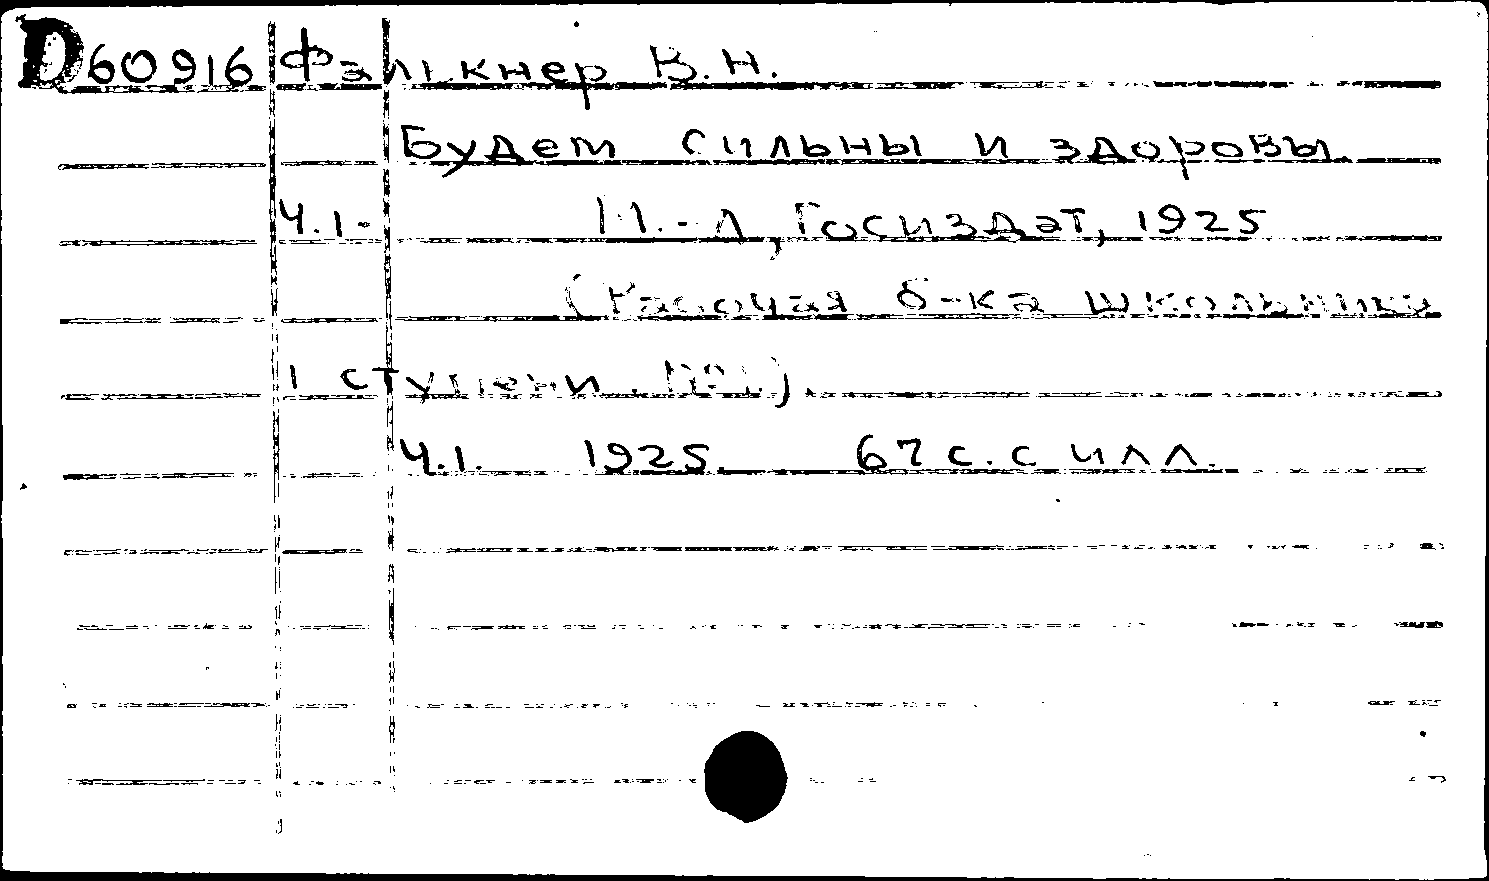 D60916 Фалькнер В.Н.
Будем сильны и здоровы.
Ч.1- М.-Л, Госиздат, 1925
(Рабочая б-ка школьника
I ступени. №1).
Ч.1. 1925. 67 с. с илл.